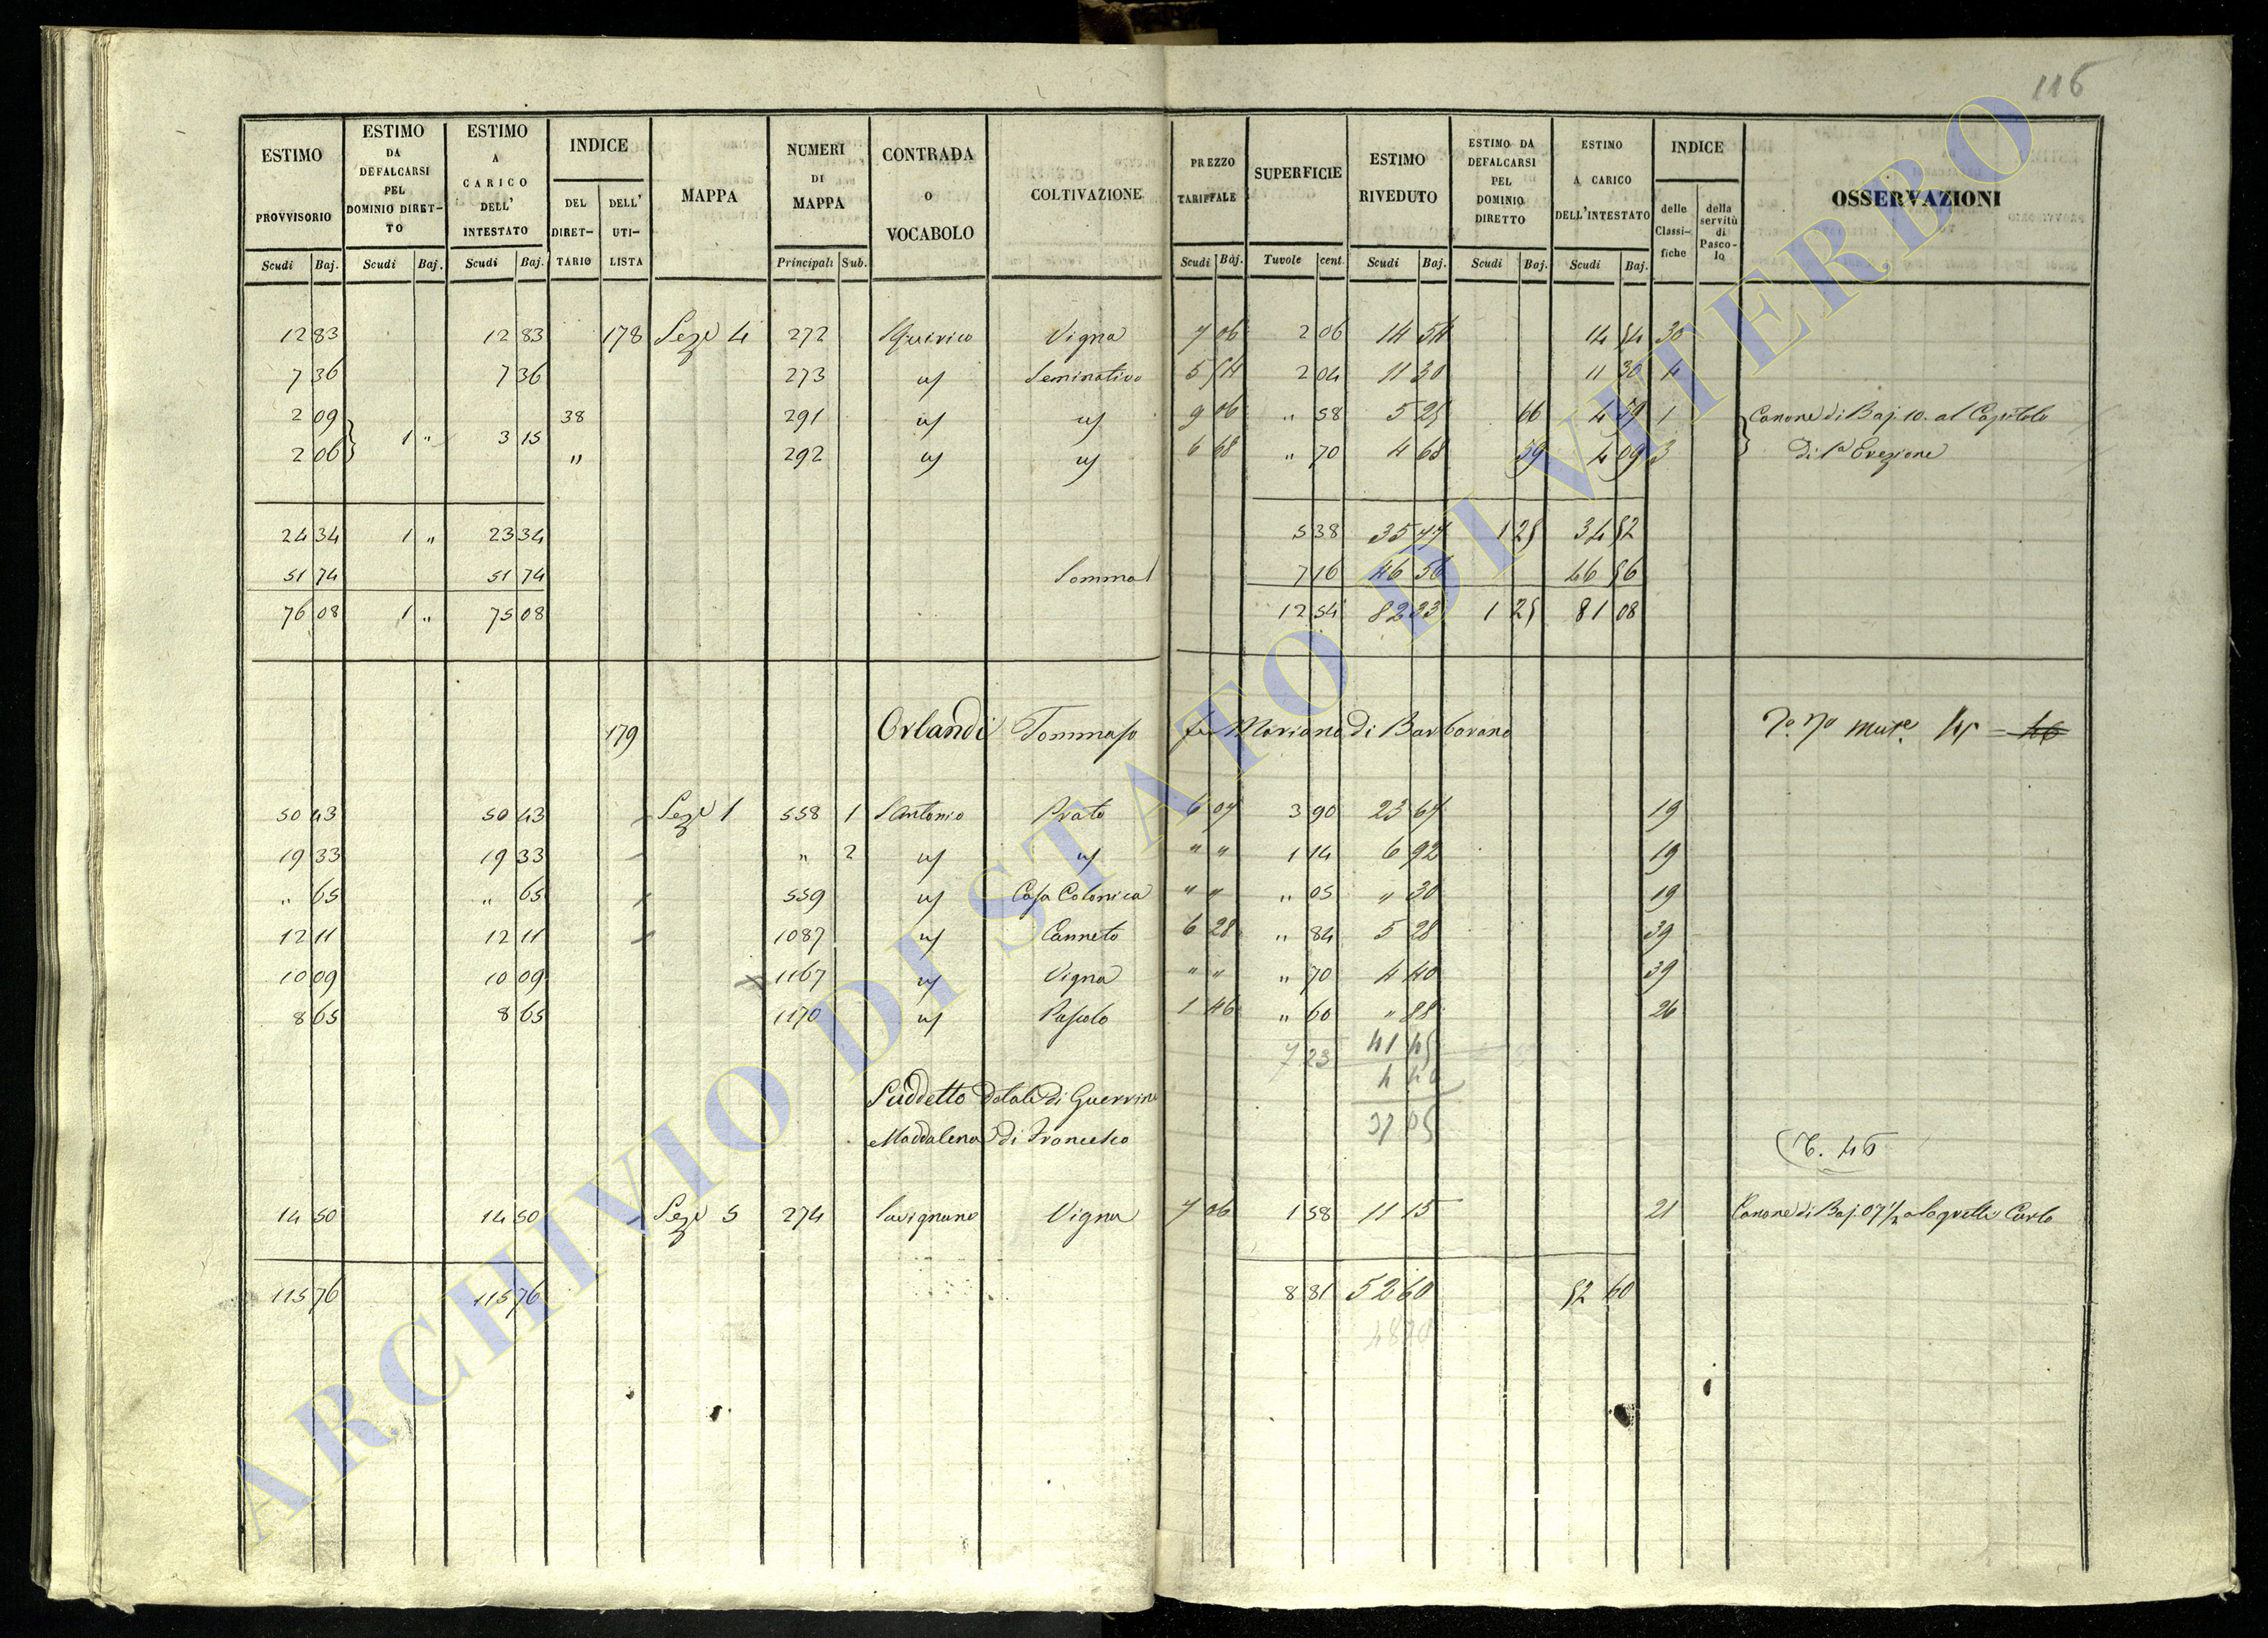 116
ESTIMO PROVVISORIO Scudi Baj. ESTIMO DA DEFALCARSI PEL DOMINIO DIRETTO Scudi Baj. ESTIMO A CARICO DELL' INTESTATO Scudi Baj. INDICE DEL DIRET-TARIO DELL' UTI-LISTA MAPPA NUMERI DI MAPPA Principali Sub. CONTRADA O VOCABOLO COLTIVAZIONE PREZZO TARIFFALE Scudi Baj. SUPERFICIE Tavole cent. ESTIMO RIVEDUTO Scudi Baj. ESTIMO DA DEFALCARSI PEL DOMINIO DIRETTO Scudi Baj. ESTIMO A CARICO DELL'INTESTATO Scudi Baj. INDICE delle Classi-fiche della servitù di Pasco-lo OSSERVAZIONI
12 83 12 83 178 Seze 4 272 S Quirico Vigna 7 06 2 06 14 54 14 54 30
7 36 7 36 273 uf Seminativo 5 54 2 04 11 30 11 30 4
2 09 38 291 uf uf 9 06 " 58 5 25 66 4 59 1 Canone di Baj. 10. al Capitolo
1 " 3 15
2 06 " 292 uf uf 6 68 " 70 4 68 59 4 09 3 di 1a Erezione
24 34 1 " 23 34 5 38 35 77 1 25 34 52
51 74 51 74 Somma 7 16 46 56 46 56
76 08 1 " 75 08 12 54 82 33 1 25 81 08
179 Orlandi Tommaso fu Mariano di Barbarano
50 43 50 43 Seze 1 558 1 S Antonio Prato 6 07 3 90 23 67 19
19 33 19 33 " 2 uf uf " " 1 14 6 92 19
" 65 " 65 559 uf Casa Colonica " " " 05 " 30 19
12 11 12 11 1087 uf Canneto 6 28 " 84 5 28 39
10 09 10 09 1167 uf Vigna " " " 70 4 40 39
8 65 8 65 1170 uf Pascolo 1 46 " 60 " 88 26
7 23 41 45
4 40
37 05
Suddetto Dotale di Guerrini
Maddalena di Francesco
14 50 14 50 Seze 5 274 Savignano Vigna 7 06 1 58 11 15 21 Canone di Baj. 07 1/2 a Carlo
115 76 115 76 8 81 52 60 52 60
48 20
ARCHIVIO DI STATO DI VITERBO